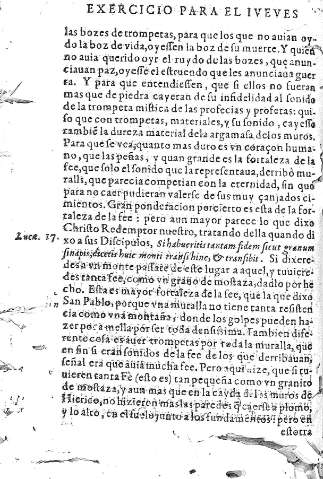 EXERCICIO PARA EL IVEVES
las bozes de trompetas, para que los que no auian oydo
do la boz de vida, oyessen la boz de su muerte. Y quien
no auia querido oyr el ruydo de las bozes, que anun-
ciauan paz, oyesse el estruendo que les anunciaua guer
ra. Y para que entendiessen, que si ellos no fueran
mas que de piedra cayeran de su infidelidad al sonido
de la trompeta mistica de las profecias y profetas: qui-
so que con trompetas, materiales, y su sonido, cayesse
tambiē la dureza material de la argamasa de los muros.
Para que se vea, quanto mas duro es vn coraçon huma-
no, que las peñas, y quan grande es la fortaleza de la
fee, que solo el sonido que la representaua, derribò mu-
rallas, que parecia competian con la eternidad, sin que
para no caer pudieran valerse de sus muy çanjados ci-
mientos. Gran ponderacion por cierto es esta de la for-
taleza de la fee: pero aun mayor parece lo que dixo
Luca. 17. Christo Redemptor nuestro, tratando della quando di
xo a sus Discipulos, Si habueritis tantam fidem sicut granum
sinapis, dicetis huic monti transi hinc, & transibit. Si dixere-
des a vn monte passate de este lugar a aquel, y tuuiere-
des tanta fee, como vn grano de mostaza, dadlo por he
cho. Esta es mayor fortaleza de la fee, que la que dixo
San Pablo, porque vna muralla no tiene tanta resisten
cia como vna montaña, donde los golpes pueden ha-
zer poca mella por ser toda densissima. Tambien dife-
rente cosa es auer trompetas por toda la muralla, que
en fin si eran sonidos de la fee de los que derribauan,
señal era que auia mucha fee. Pero aqui dize, que si tu-
uieren tanta Fè (esto es) tan pequeña como vn granito
de mostaza, y aun mas que en la cayda de los muros de
Hierico, no hizieron mas las paredes que caerse a plomo,
y lo alto, en el suelo junto a los fundamentos: pero en
estotra